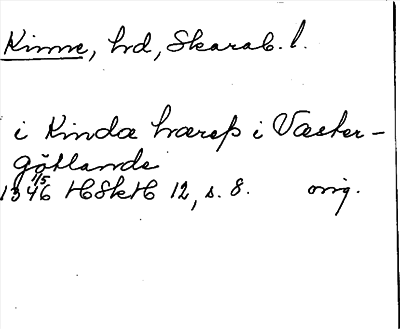 Kinne, hd, Skarab. l.
i Kinda hæreþ i Væster-
götlande
1346 1/5 HSkH 12, s. 8. orig.